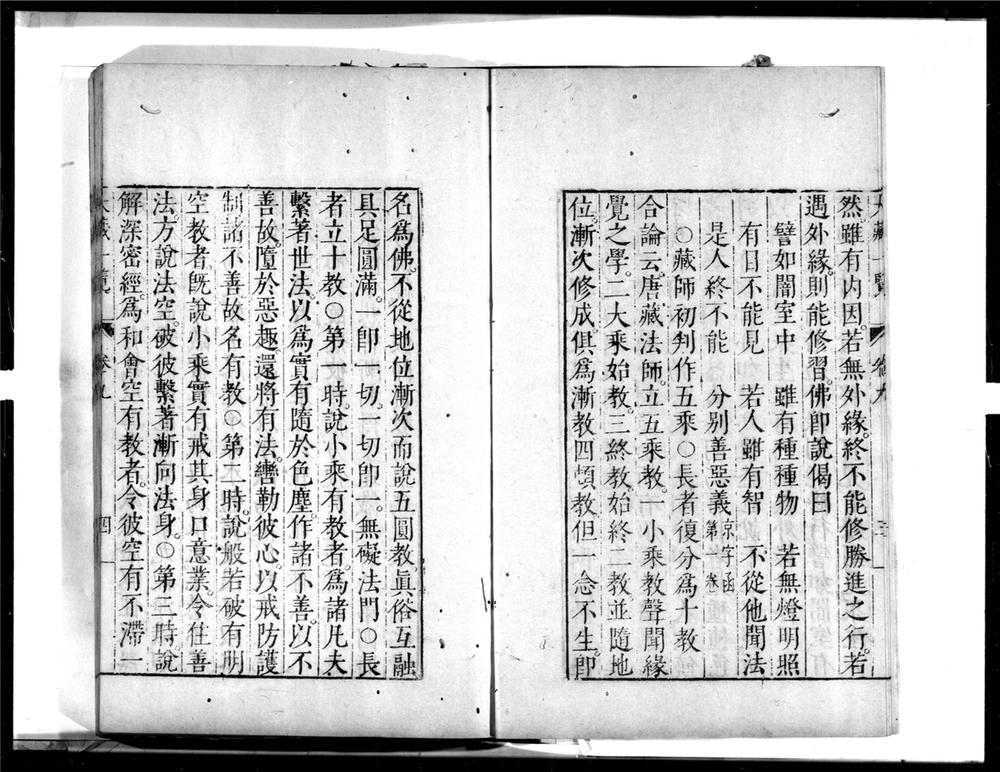 大藏一覽 卷九 三
然。雖有内因。若無外緣。終不能修勝進之行。若
遇外緣。則能修習。佛即說偈曰
譬如闇室中 雖有種種物 若無燈明照
有目不能見 若人雖有智 不從他聞法
是人終不能 分別善惡義 京字函第一卷
○藏師初判作五乘○長者復分爲十教
合論云。唐藏法師。立五乘教。一小乘教聲聞緣
覺之學。二大乘始教。三終教。始終二教。並隨地
位。漸次修成。俱爲漸教四頓教但一念不生。即
名爲佛。不從地位漸次而說五圓教眞俗互融
具足圓滿。一即一切。一切即一。無礙法門○長
者立十教○第一時說小乘有教者。爲諸凡夫
繫著世法。以爲實有隨於色塵。作諸不善。以不
善故。墮於惡趣。還將有法。轡勒彼心。以戒防護
制諸不善故名有教○第二時。說般若破有明
空教者。旣說小乘實有戒其身口意業。令住善
法方說法空。破彼繫著漸向法身。○第三時。說
解深密經。爲和會空有教者。令彼空有不滯一
大藏一覽 卷九 四